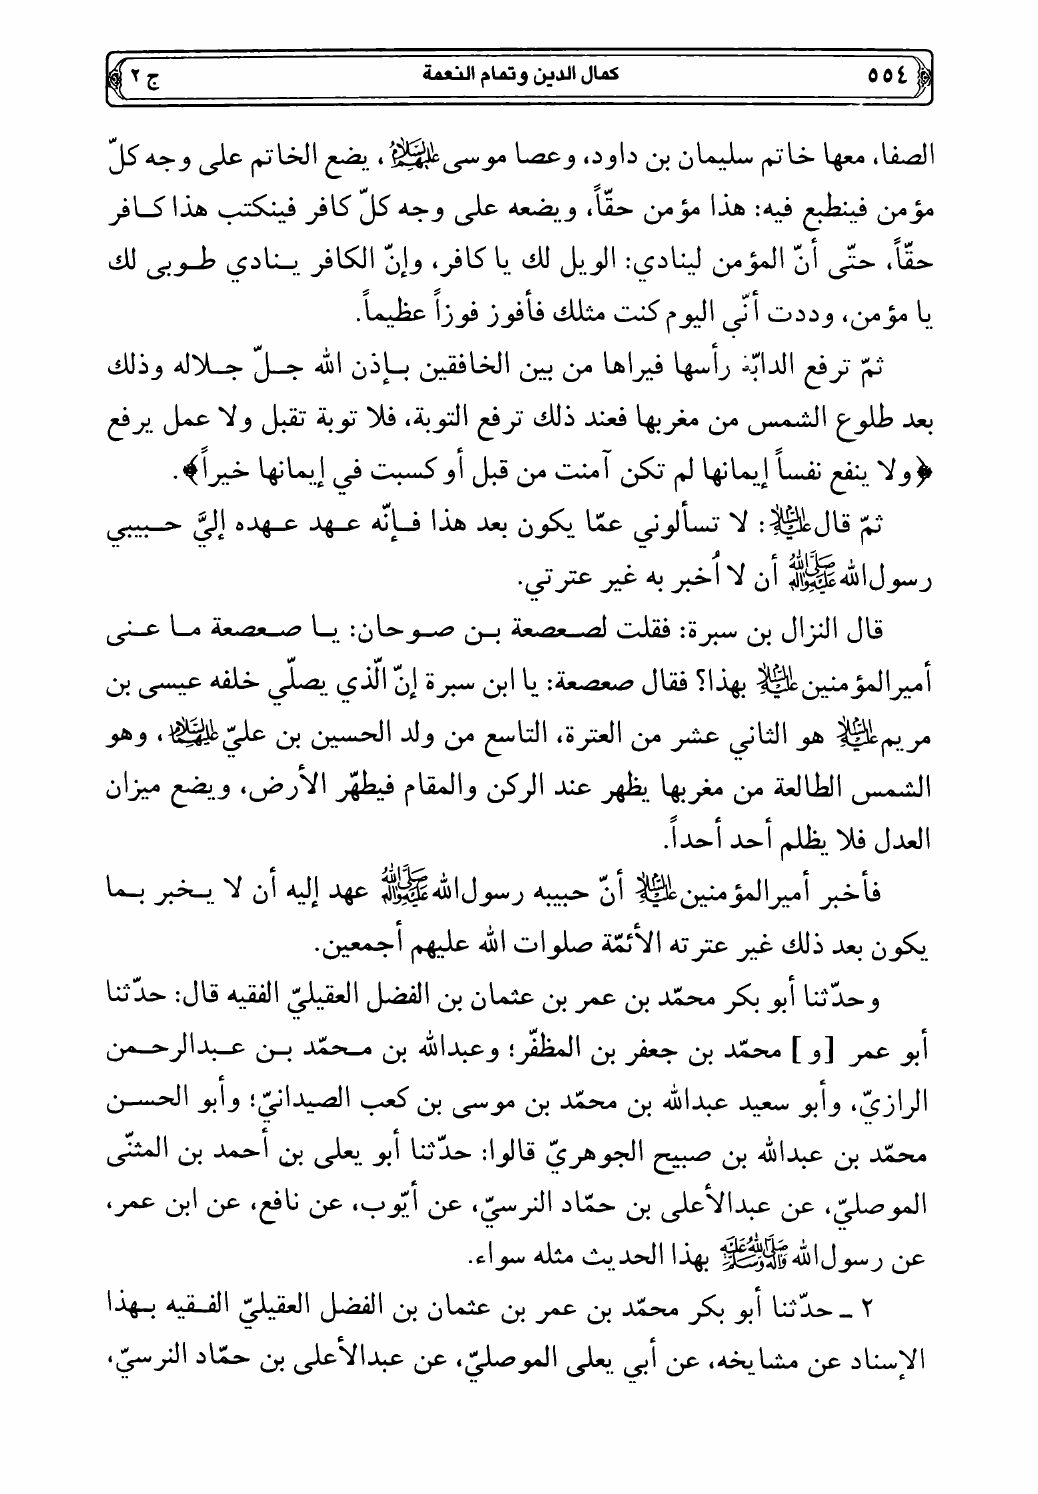 ٥٥٤ كمال الدين وتمام النعمة ج ٢
الصفا، معها خاتم سليمان بن داود، وعصا موسى عليهم السلام، يضع الخاتم على وجه كلّ
مؤمن فينطبع فيه: هذا مؤمن حقّاً، ويضعه على وجه كلّ كافر فينكتب هذا كافر
حقّاً، حتّى أنّ المؤمن لينادي: الويل لك يا كافر، وإنّ الكافر ينادي طوبى لك
يا مؤمن، وددت أنّي اليوم كنت مثلك فأفوز فوزاً عظيماً.
ثمّ ترفع الدابّة رأسها فيراها من بين الخافقين بإذن الله جلّ جلاله وذلك
بعد طلوع الشمس من مغربها فعند ذلك ترفع التوبة، فلا توبة تقبل ولا عمل يرفع
﴿ولا ينفع نفساً إيمانها لم تكن آمنت من قبل أو كسبت في إيمانها خيراً﴾.
ثمّ قال عليه السلام: لا تسألوني عمّا يكون بعد هذا فإنّه عهد عهده إليَّ حبيبي
رسول الله صلى الله عليه وآله أن لا اُخبر به غير عترتي.
قال النزال بن سبرة: فقلت لصعصعة بن صوحان: يا صعصعة ما عنى
أمير المؤمنين عليه السلام بهذا؟ فقال صعصعة: يا ابن سبرة إنّ الّذي يصلّي خلفه عيسى بن
مريم عليه السلام هو الثاني عشر من العترة، التاسع من ولد الحسين بن عليّ عليهما السلام، وهو
الشمس الطالعة من مغربها يظهر عند الركن والمقام فيطهّر الأرض، ويضع ميزان
العدل فلا يظلم أحد أحداً.
فأخبر أمير المؤمنين عليه السلام أنّ حبيبه رسول الله صلى الله عليه وآله عهد إليه أن لا يخبر بما
يكون بعد ذلك غير عترته الأئمّة صلوات الله عليهم أجمعين.
وحدّثنا أبو بكر محمّد بن عمر بن عثمان بن الفضل العقيليّ الفقيه قال: حدّثنا
أبو عمر [و] محمّد بن جعفر بن المظفّر؛ وعبدالله بن محمّد بن عبدالرحمن
الرازيّ، وأبو سعيد عبدالله بن محمّد بن موسى بن كعب الصيدانيّ؛ وأبو الحسن
محمّد بن عبدالله بن صبيح الجوهريّ قالوا: حدّثنا أبو يعلى بن أحمد بن المثنّى
الموصليّ، عن عبدالأعلى بن حمّاد النرسيّ، عن أيّوب، عن نافع، عن ابن عمر،
عن رسول الله صلى الله عليه وآله وسلم بهذا الحديث مثله سواء.
٢ ـ حدّثنا أبو بكر محمّد بن عمر بن عثمان بن الفضل العقيليّ الفقيه بهذا
الإسناد عن مشايخه، عن أبي يعلى الموصليّ، عن عبدالأعلى بن حمّاد النرسيّ،